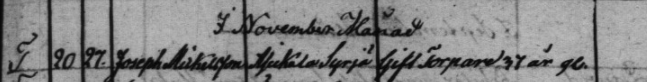 I November Månad
20 27. Joseph Mickelsson Mickala Syrjä Gift Torpare 37 år gl.